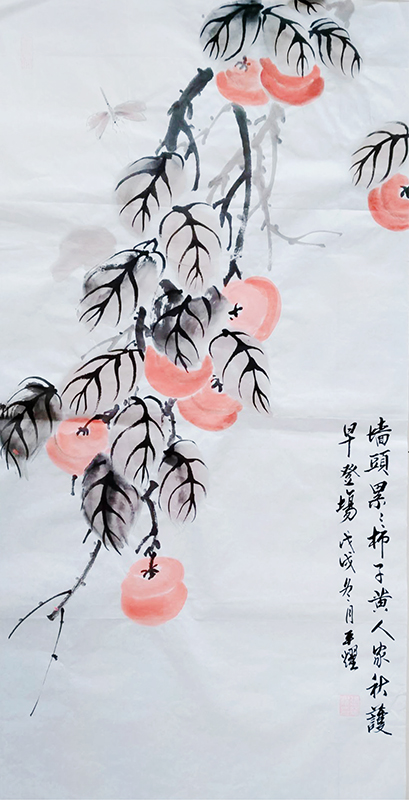 墻頭累〻柿子黄人家秋護
早登場戊戌冬月平耀